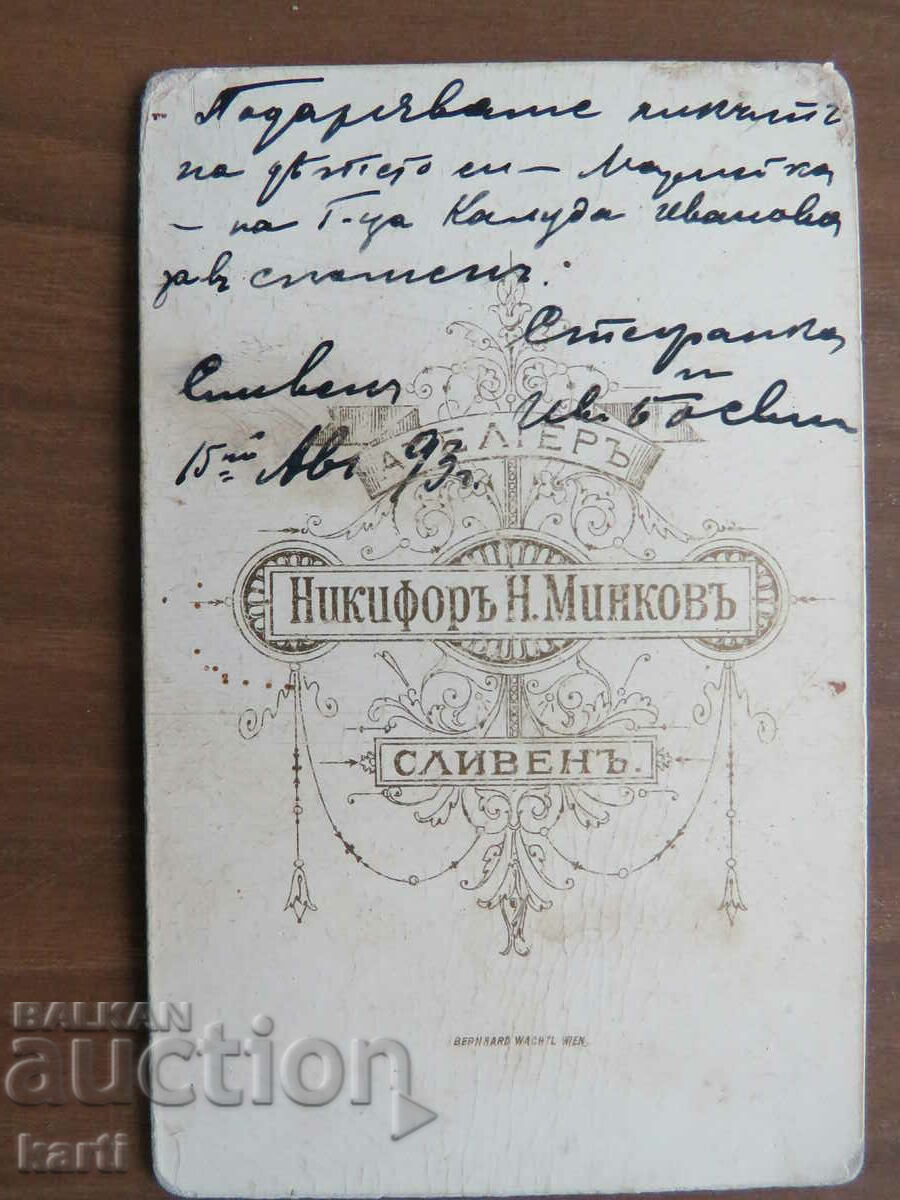 Подаряваме ликътъ
на дѣтето си — Марийка
— на Г-ца Калуда Иванова
за въ споменъ:
Стефанка
и
Сливенъ
Ив. Бѣеви
15ий Авг. 93 г.
АТЕЛИЕРЪ
НИКИФОРЪ Н. МИНКОВЪ
СЛИВЕНЪ.
BERNHARD WACHTL WIEN.
BALKAN
auction
karti